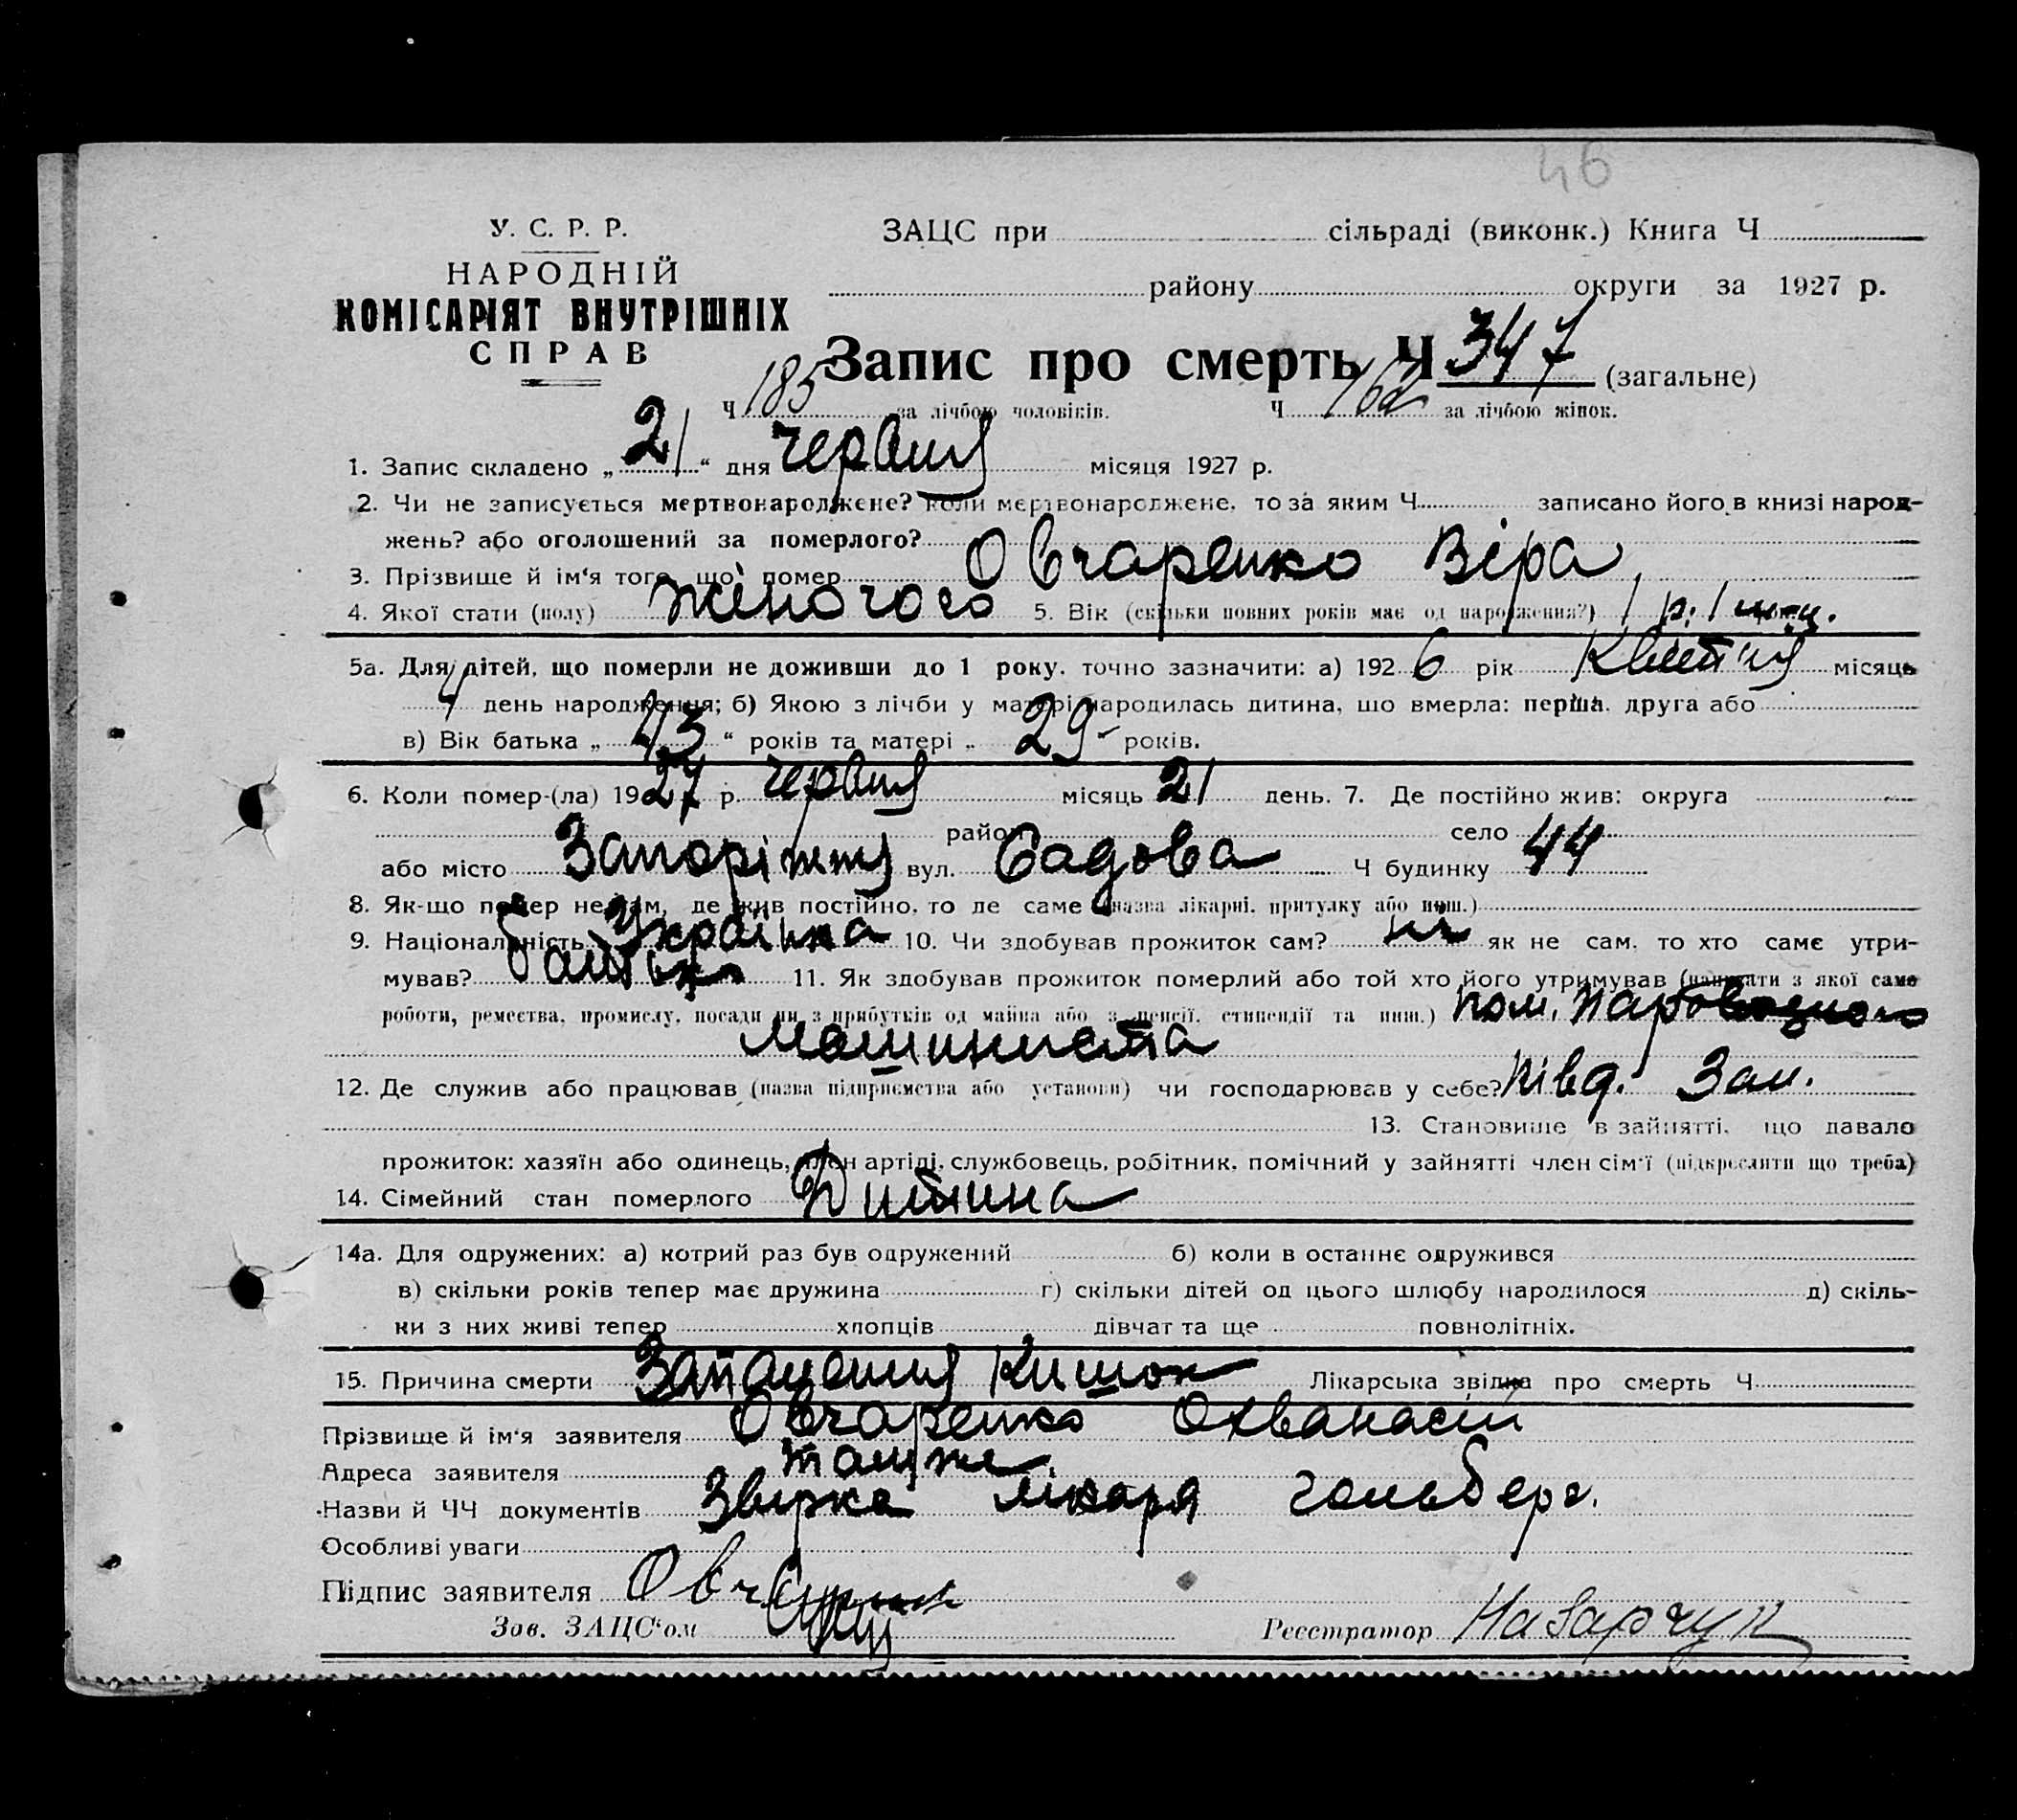 46
У. С. Р. Р.
НАРОДНІЙ
КОМІСАРІЯТ ВНУТРІШНІХ
СПРАВ
ЗАЦС при сільраді (виконк.) Книга Ч
району округи за 1927 р.
Запис про смерть Ч 347 (загальне)
Ч 185 за лічбою чоловіків. Ч 162 за лічбою жінок.
1. Запис складено „21“ дня червня місяця 1927 р.
2. Чи не записується мертвонароджене? коли мертвонароджене, то за яким Ч записано його в книзі народ-
жень? або оголошений за померлого?
3. Прізвище й ім‘я того, що помер Овчаренко Віра
4. Якої стати (полу) жіночого 5. Вік (скільки повних років має од народження?) 1 р. 1
5а. Для дітей, що померли не доживши до 1 року, точно зазначити: а) 1926 рік Квітня місяць
4 день народження; б) Якою з лічби у матері народилась дитина, що вмерла: перша, друга або
в) Вік батька „43“ років та матері „29 років.
6. Коли помер-(ла) 1927 р. червня місяць 21 день. 7. Де постійно жив: округа
район село
або місто Запоріжжя вул. Садова Ч будинку 44
8. Як-що помер не там, де жив постійно, то де саме (назва лікарні, притулку або инш.)
9. Національність Українка 10. Чи здобував прожиток сам? ні як не сам, то хто саме утри-
мував? батько 11. Як здобував прожиток померлий або той хто його утримував (написати з якої саме
роботи, ремества, промислу, посади чи з прибутків од майна або з пенсії, стипендії та инш.) пом. паровозного
машиниста
12. Де служив або працював (назва підприємства або установи) чи господарював у себе? Півд. Зал.
13. Становище в зайнятті, що давало
прожиток: хазяїн або одинець, член артілі, службовець, робітник, помічний у зайнятті член сім‘ї (підкреслити що треба)
14. Сімейний стан померлого Дитина
14а. Для одружених: а) котрий раз був одружений б) коли в останнє одружився
в) скільки років тепер має дружина г) скільки дітей од цього шлюбу народилося д) скіль-
ки з них живі тепер хлопців дівчат та ще повнолітніх.
15. Причина смерти Запалення Кишок Лікарська звідка про смерть Ч
Прізвище й ім‘я заявителя Овчаренко Охванасій
Адреса заявителя
Назви й ЧЧ документів лікаря Гольберг.
Особливі уваги
Підпис заявителя
Зав. ЗАЦС‘ом Реєстратор Назарчук